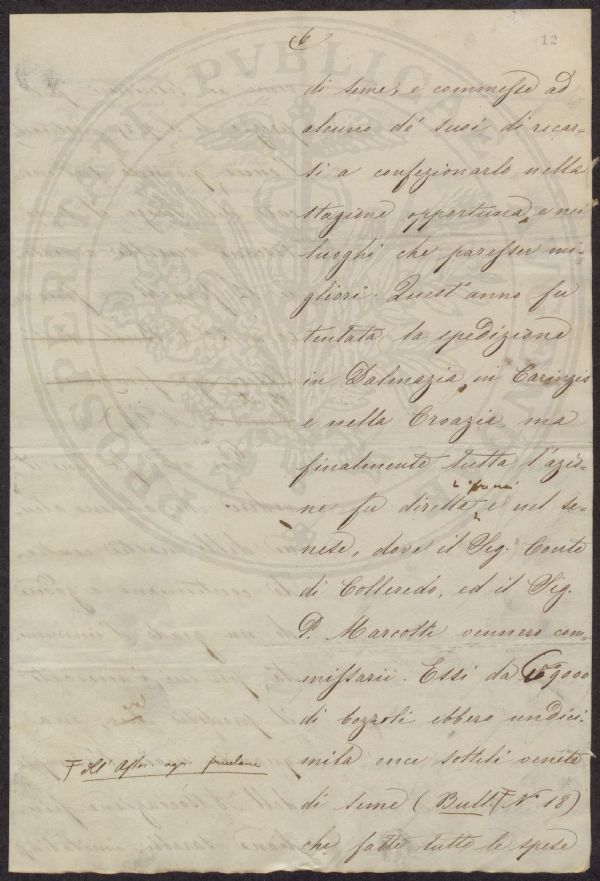 6
12
di seme, e commesse ad
alcuno de' suoi di recar-
si a confezionarlo nella
stagione opportuna, e nei
luoghi che paresser mi-
gliori. Quest'anno fu
tentata la spedizione
in Dalmazia, in Carinzia
e nella Croazia, ma
finalmente tutta l'azio-
ne fu diretta e nel se-
nese, dove il Sig. Conte
di Colleredo, ed il Sig.
P. Marcotti vennero com-
missarii. Essi da 9000
di bozzoli ebbero undici-
mila once sottili venete
di seme (Bull. F N.º 18)
che fatte tutte le spese
F dell' Assoc. agr. friulana
PROSPERITATI PVBLICAE